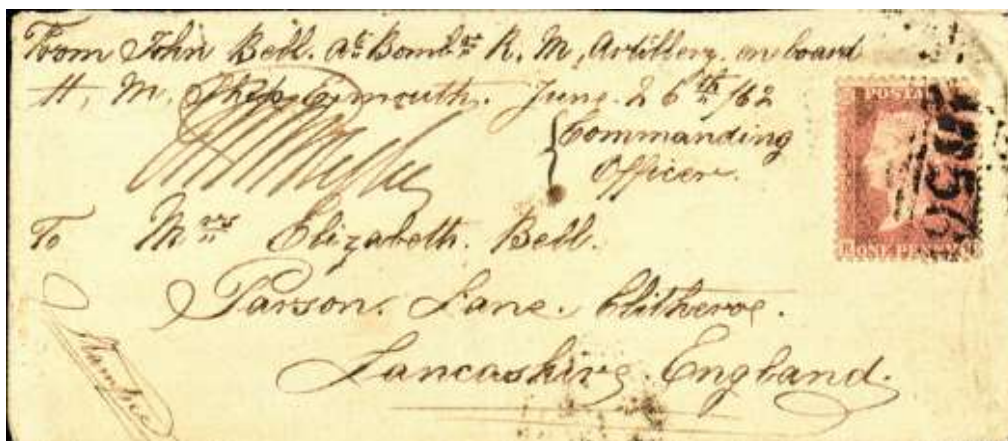 From John Bell. ag Bombr R. M. Artillery. on board
H. M. Ship Plymouth. June. 26th /62
{ Commanding
Officer.
To Mrs Elizabeth. Bell.
Parson. Lane. Clitheroe.
Lancashire. England.
POSTAGE
ONE PENNY